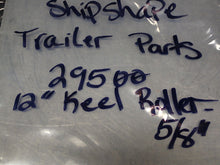 Shipshape
Trailer Parts
29500
12" Keel Roller-
5/8"